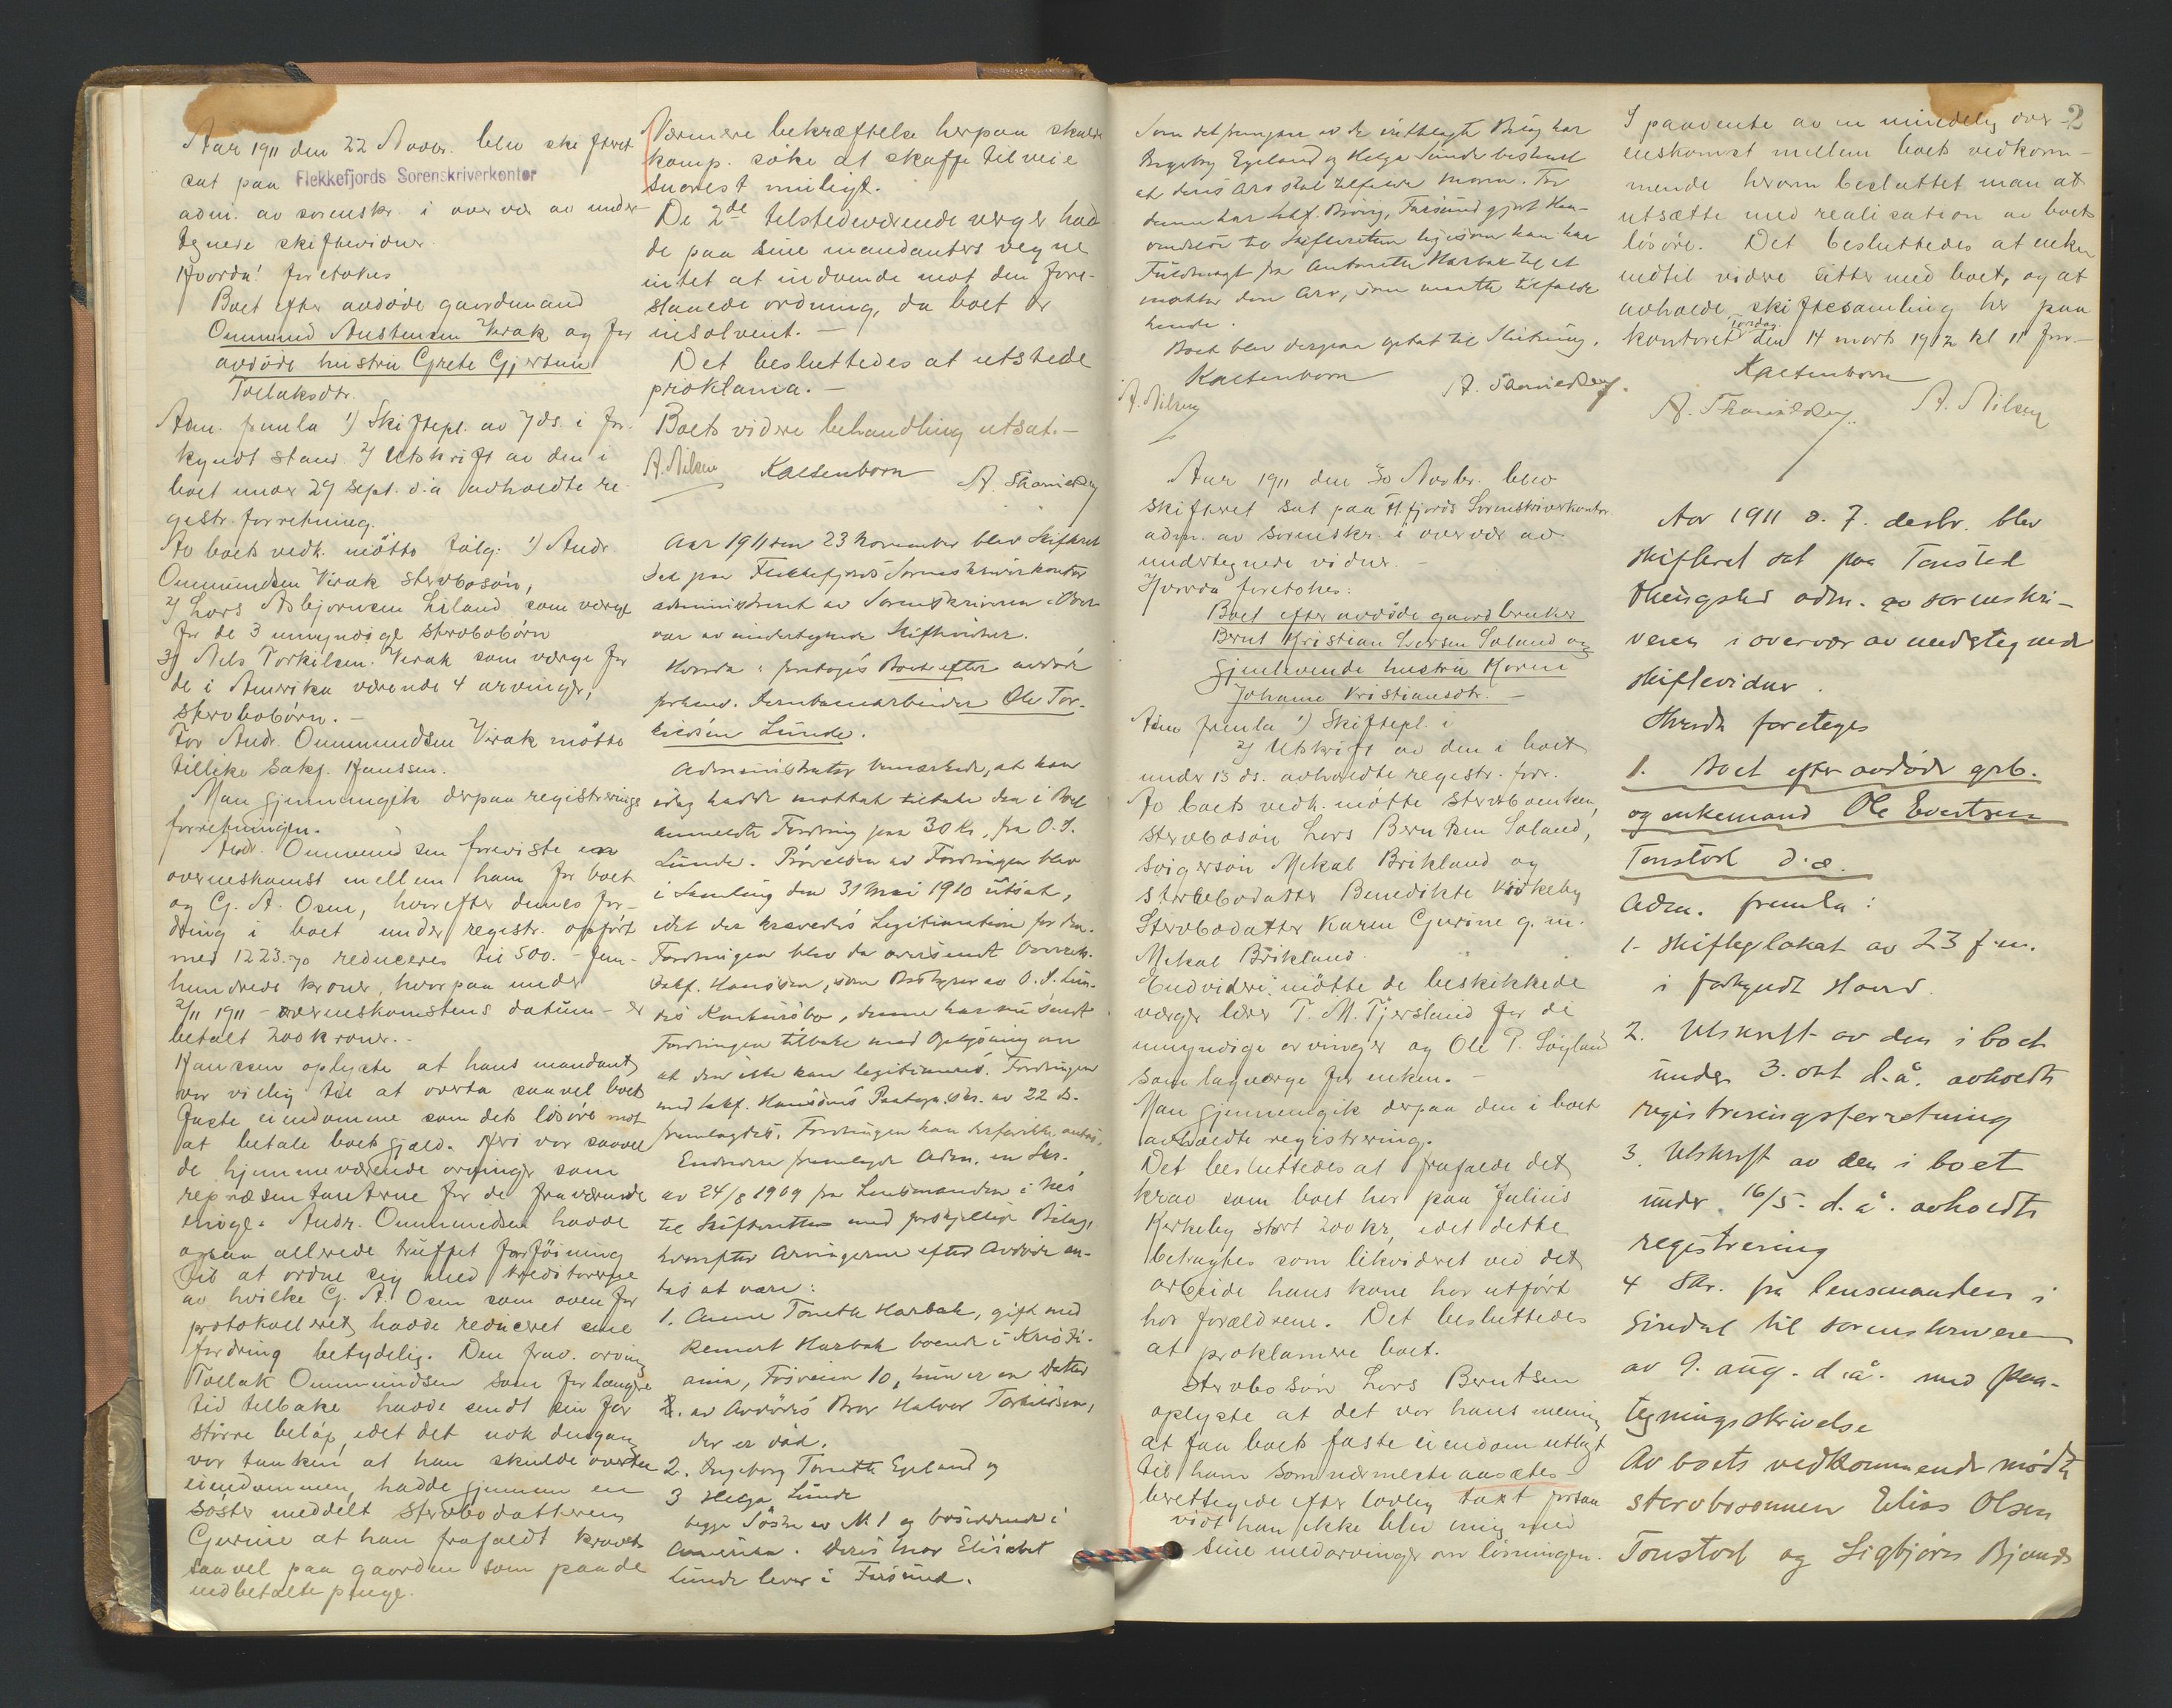 Aar 1911 den 22 Novbr. blev skifteret
sat paa Flekkefjords Sorenskriverkontor
adm. av sorenskr. i overvær av under-
tegnede skiftevidner.
Hvorda! foretokes
Boet efter avdøde gaardmand
Ommund Austensen Virak og før
avdøde hustru Grete Gjertine
Tollaksdtr.
Adm. fremla 1) Skiftepl. av 7 ds. i for-
kyndt stand. 2) Utskrift av den i
boet under 29 sept. d.a avholdte re-
gistr. forretning.
Av boets vedk. møtte følg: 1) Andr.
Ommundsen Virak stervbosøn,
2) Lars Asbjørnsen Liland som verge
for de 3 umyndige stervbobørn
3) Nels Torkilsen Virak som verge for
de i Amerika værende 4 arvinger,
stervbobørn. –
For Andr. Ommundsen Virak møtte
tillike sakf. Hanssen.
Man gjennemgik derpaa registrerings
forretningen.
Andr. Ommundsen foreviste en
overenskomst mellem ham for boet
og G. A. Osen, hvorefter dennes for-
dring i boet under registr. opført
med 1223.70 reduceres til 500. – fem-
hundrede kroner, hvorpaa under
2/11 1911 – overenskomstens datum – er
betalt 200 kroner. –
Hanssen oplyste at hans mandant
var villig til at overta saavel boets
faste eiendomme som dets løsøre mot
at betale boets gjæld. Heri var saavel
de hjemmeværende arvinger som
repræsentanterne for de fraværende
enige. Andr. Ommundsen hadde
ogsaa allerede truffet forføining
til at ordne sig med kreditorerne
av hvilke G. A. Osen som oven for
protokolleret hadde reduceret sine
fordring betydelig. Den frav. arving
Tollak Ommundsen som for længre
tid tilbake hadde sendt sin far
større beløp, idet det nok dengang
var tanken at han skulde overta
eiendommen, hadde gjennem en
søster meddelt stervbodatteren
Gurine at han frafaldt kravet
saavel paa gaarden som paa de
indbetalte penge.
Nærmere bekræftelse herpaa skulde
komp. søke at skaffe tilveie
snarest muligt.
De 2de tilstedeværende verger had-
de paa sine mandanters vegne
intet at indvende mot den fore-
slaaede ordning, da boet er
insolvent. –
Det besluttedes at utstede
proklama. –
Boets videre behandling utsat. –
A. Nilsen Kaltenborn
Aar 1911 den 23 November blev Skifteret
sat paa Flekkefjords Sorenskriverkontor
administreret av Sorenskriveren i Over-
vær av undertegnede Skiftevidner.
Hvorda: foretoges Boet efter avdøde
forhenv. Jernbanearbeider Ole Tor-
kildsen Lunde.
Administrator bemerkede, at han
idag hadde mottat tilbake den i Boet
anmeldte Fordring paa 30 Kr. fra O. S.
Lunde. Prøvelsen av Fordringen blev
i Samling den 31 Mai 1910 utsat,
idet der krævedes Legitimation for den.
Fordringen blev da oversendt Overrets-
sakf. Hansson, som Bestyrer av O. S. Lun-
des Konkursbo, denne har nu sendt
Fordringen tilbake med Oplysning om
at den ikke kan legitimeres. Fordringen
med sakf. Hanssons Paategn. skr. av 22 ds.
fremlagdes. Fordringen kan derfor ikke antas.
Endvidere fremlagde Adm. en Skr.
av 24/8 1909 fra Lensmanden i Nes
til Skifteretten med forskjellige Bilag,
hvorefter Arvingerne efter Avdøde an-
tas at være:
1. Anne Tonette Harbak, gift med
Reinert Harbak boende i Kristi-
ania, Fosveien 10, hun er en Datter
2. av Avdødes Bror Halvor Torkildsen,
der er død.
2. Ingeborg Tonette Egeland og
3 Helga Lunde
begge Søstre av N. 1 og bosiddende i
Amerika. Deres Mor Elisabet
Lunde lever i Farsund.
Som det fremgaar av de vedlagte Bilag har
Ingeborg Egeland og Helga Lunde bestemt
at deres Arv skal tilfalde Moren. For
denne har sakf. Farsund gjort Hen-
vendelse til Skifteretten ligesom han har
Fuldmagt fra Antonette Harbak til at
motta den Arv, som maatte tilfalde
hende.
Boet blev derpaa optat til Slutning.
Kaltenborn
A. Nilsen
Aar 1911 den 30 Novbr. blev
skifteret sat paa Fl.fjords Sorenskriverkontor
adm. av sorenskr. i overvær av
undertegnede vidner. –
Hvorda foretokes:
Boet efter avdøde gaardbruker
Bernt Kristian Larsen Søland og
gjenlevende hustru Karen
Johanne Kristiansdtr. –
Adm fremla 1) Skiftepl. i
2) Utskrift av den i boet
under 13 ds. avholdte registr. forr.
Av boets vedk. møtte stervboenken,
stervbosøn Lars Berntsen Søland,
svigersøn Mekal Brikland og
stervbodatter Benedikte Kirkeby
Stervbodatter Karen Gurine g. m.
Mekal Brikland.
Endvidere møtte de beskikkede
verger lærer T. M. Tjersland for de
umyndige arvinger og Ole P. Løyland
som lagverge for enken. –
Man gjennemgik derpaa den i boet
avholdte registrering.
Det besluttedes at frafalde det
krav som boet har paa Julius
Kirkeby stort 200 kr, idet dette
betragtes som likvideret ved det
arbeide hans kone har utført
hos forældrene. Det besluttedes
at proklamere boet.
Stervbosøn Lars Berntsen
oplyste at det var hans mening
at faa boets faste eiendom utlagt
til ham som nærmeste aasætes-
berettigede efter lovlig takt forsaa
vidt han ikke blev enig med
sine medarvinger om løsningen.
2
I paavente av en mindelig over-
enskomst mellem boets vedkom-
mende herom besluttet man at
utsætte med realisation av boets
løsøre. Det besluttedes at enken
indtil videre sitter med boet, og at
avholde skiftesamling her paa
kontoret torsdag den 14 marts 1912 kl 11 fm. –
Kaltenborn
A. Nilsen
Aar 1911 d. 7. desbr. blev
skifteret sat paa Tonstad
thingsted adm. av sorenskri-
veren i overvær av undertegnede
skiftevidner.
Hvorda foretoges
1. Boet efter avdøde grb.
og enkemand Ole Evertsen
Tonstad d.æ.
Adm. fremla:
1. skifteplakat av 23 f.m.
i forkyndt stand.
2. Utskrift av den i boet
under 3. okt d.å. avholdte
registreringsforretning
3. Utskrift av den i boet
under 16/5. d.å. avholdte
registrering
4 Skr. fra lensmanden i
Sirdal til sorenskriveren
av 9. aug. d.å. med paa-
tegningsskrivelse
Av boets vedkommende mødte
stervbosønnen Elias Olsen
Tonstad og Sigbjørn Bjunes